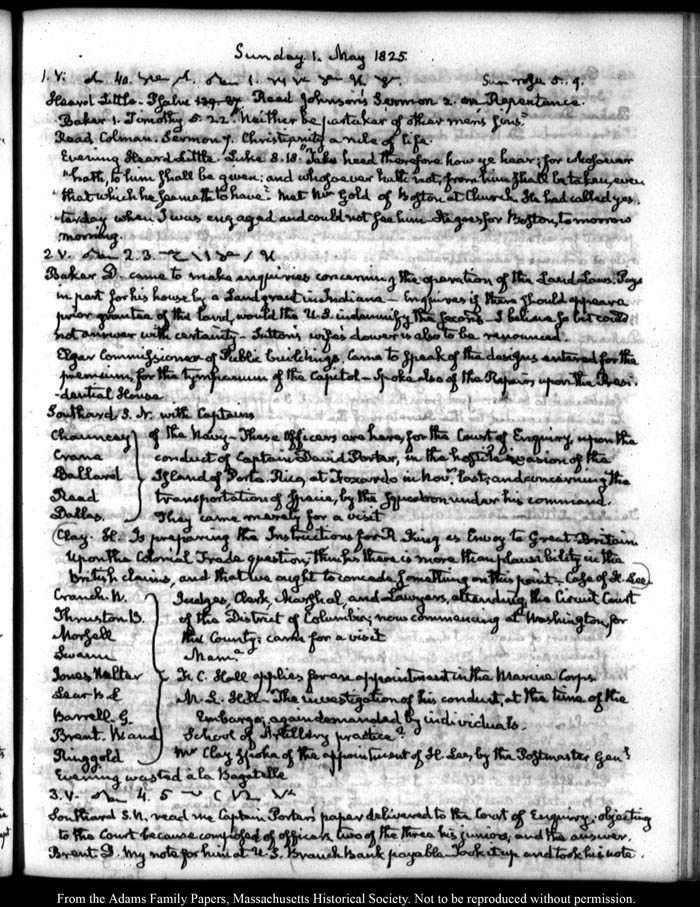 Sunday 1. May 1825.
1. V. 40. 1. Sun rose 5..9.
Heard Little. Psalm Read Johnson's Sermon 2. on Repentance.
Baker 1. Timothy 5. 22. "Neither be partaker of other men's sins."
Read Colman. Sermon 7. Christianity a rule of life.
Evening Heard Little. Luke 8. 18. "Take heed therefore how ye hear; for whosoever
"hath, to him shall be given; and whosoever hath not, from him shall be taken, even
"that which he seemeth to have." Met Mr Gold of Boston at Church. He had called yes-
-terday when I was engaged and could not see him. He goes for Boston, tomorrow
morning.
2 V. 2. 3.
Baker D. came to make enquiries concerning the operation of the Land Laws. Pays
in part for his house by a Land grant in Indiana — Enquires if there should appear a
prior grantee of the land, would the U.S. indemnify the second. I believe so but could
not answer with certainty — Sutton's wife's dower is also to be renounced.
Elgar Commissioner of Public buildings, came to speak of the designs entered for the
premium, for the tympanum of the Capitol — Spoke also of the Repairs upon the Presi-
-dential House
Southard S. N. with Captains
Chauncey of the Navy — These Officers are here, for the Court of Enquiry upon the
Crane conduct of Captain David Porter, in the hostile invasion of the
Ballard Island of Porto-Rico, at Foxardo in Novr last; and concerning the
Read transportation of Specie, by the Squadron under his command.
Dallas. They came merely for a visit
Clay. H. Is preparing the Instructions for R. King as Envoy to Great-Britain
Upon the Colonial Trade question, thinks there is more than plausibility in the
British claims, and that we ought to concede something on this point — Case of H. Lee
Cranch W. Judges, Clerk, Marshal, and Lawyers, attending the Circuit Court
Thruston B. of the District of Columbia, now commencing at Washington, for
Morsell this County; came for a visit
Swann Mema
Jones Walter K. C. Hall applies for an appointment in the Marine Corps.
Lear B. L M. L. Hill — The investigation of his conduct, at the time of the
Barrell G. Embargo, again demanded by individuals.
Brent. W. and School of Artillery practice?
Ringgold Mr Clay spoke of the appointment of H. Lee, by the Postmaster Genl
Evening wasted à la Bagatelle
3. V. 4. 5
Southard S. N. read me Captain Porter's paper delivered to the Court of Enquiry; objecting
to the Court because composed of officers, two of the three his juniors, and the answer.
Brent D. My note for him at U. S. Branch Bank payable. Took it up and took his note.
From the Adams Family Papers, Massachusetts Historical Society. Not to be reproduced without permission.